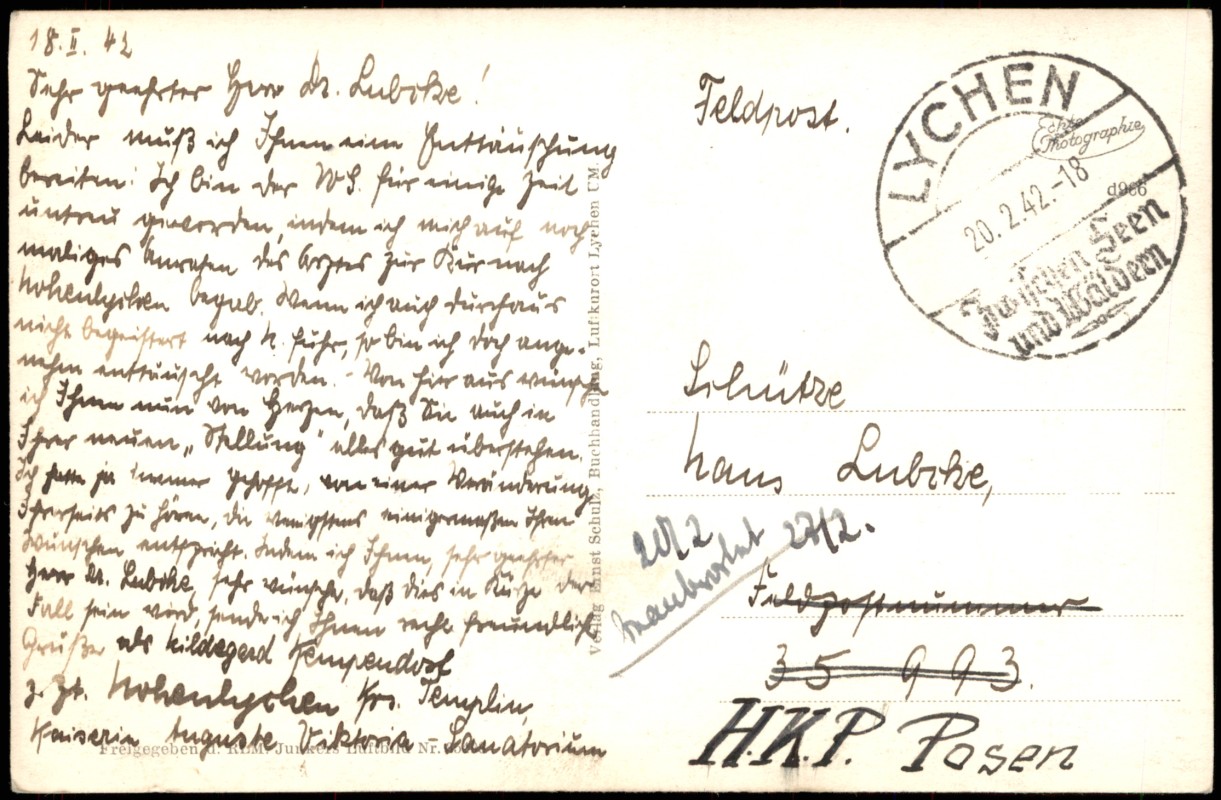 18.II.42
Sehr geehrter Herr Dr. Lubcke!
Leider muß ich Ihnen eine Enttäuschung
bereiten: Ich bin der WS. für einige Zeit
untreu geworden, indem ich mich auf noch-
maliges Anraten des Arztes zur Kur nach
Hohenlychen begab. Wenn ich auch durchaus
nicht begeistert nach H. fuhr, so bin ich doch ange-
nehm enttäuscht worden. - Von hier aus wünsche
ich Ihnen nun von Herzen, daß Sie auch in
Ihrer neuen „Stellung" alles gut überstehen.
Ich hatte ja immer gehofft, von einer Veränderung
Ihrerseits zu hören, die wenigstens einigermaßen Ihren
Wünschen entspricht. Indem ich Ihnen, sehr geehrter
Herr Dr. Lubcke, sehr wünsche, daß dies in Kürze der
Fall sein wird, sende ich Ihnen recht freundliche
Grüße als Hildegard Kempendorf
z. Zt. Hohenlychen Krs. Templin,
Kaiserin Auguste Viktoria - Sanatorium
Freigegeben d. RLM, Junkers Luftbild Nr.
Verlag Ernst Schulz, Buchhandlung, Luftkurort Lychen UM.
Feldpost.
LYCHEN
Echte
Photographie
d966
20.2.42.-18
Zwischen Seen
und Wäldern
Schütze
Hans Lubcke,
27/2.
Feldpostnummer
35 993.
H.K.P. Posen